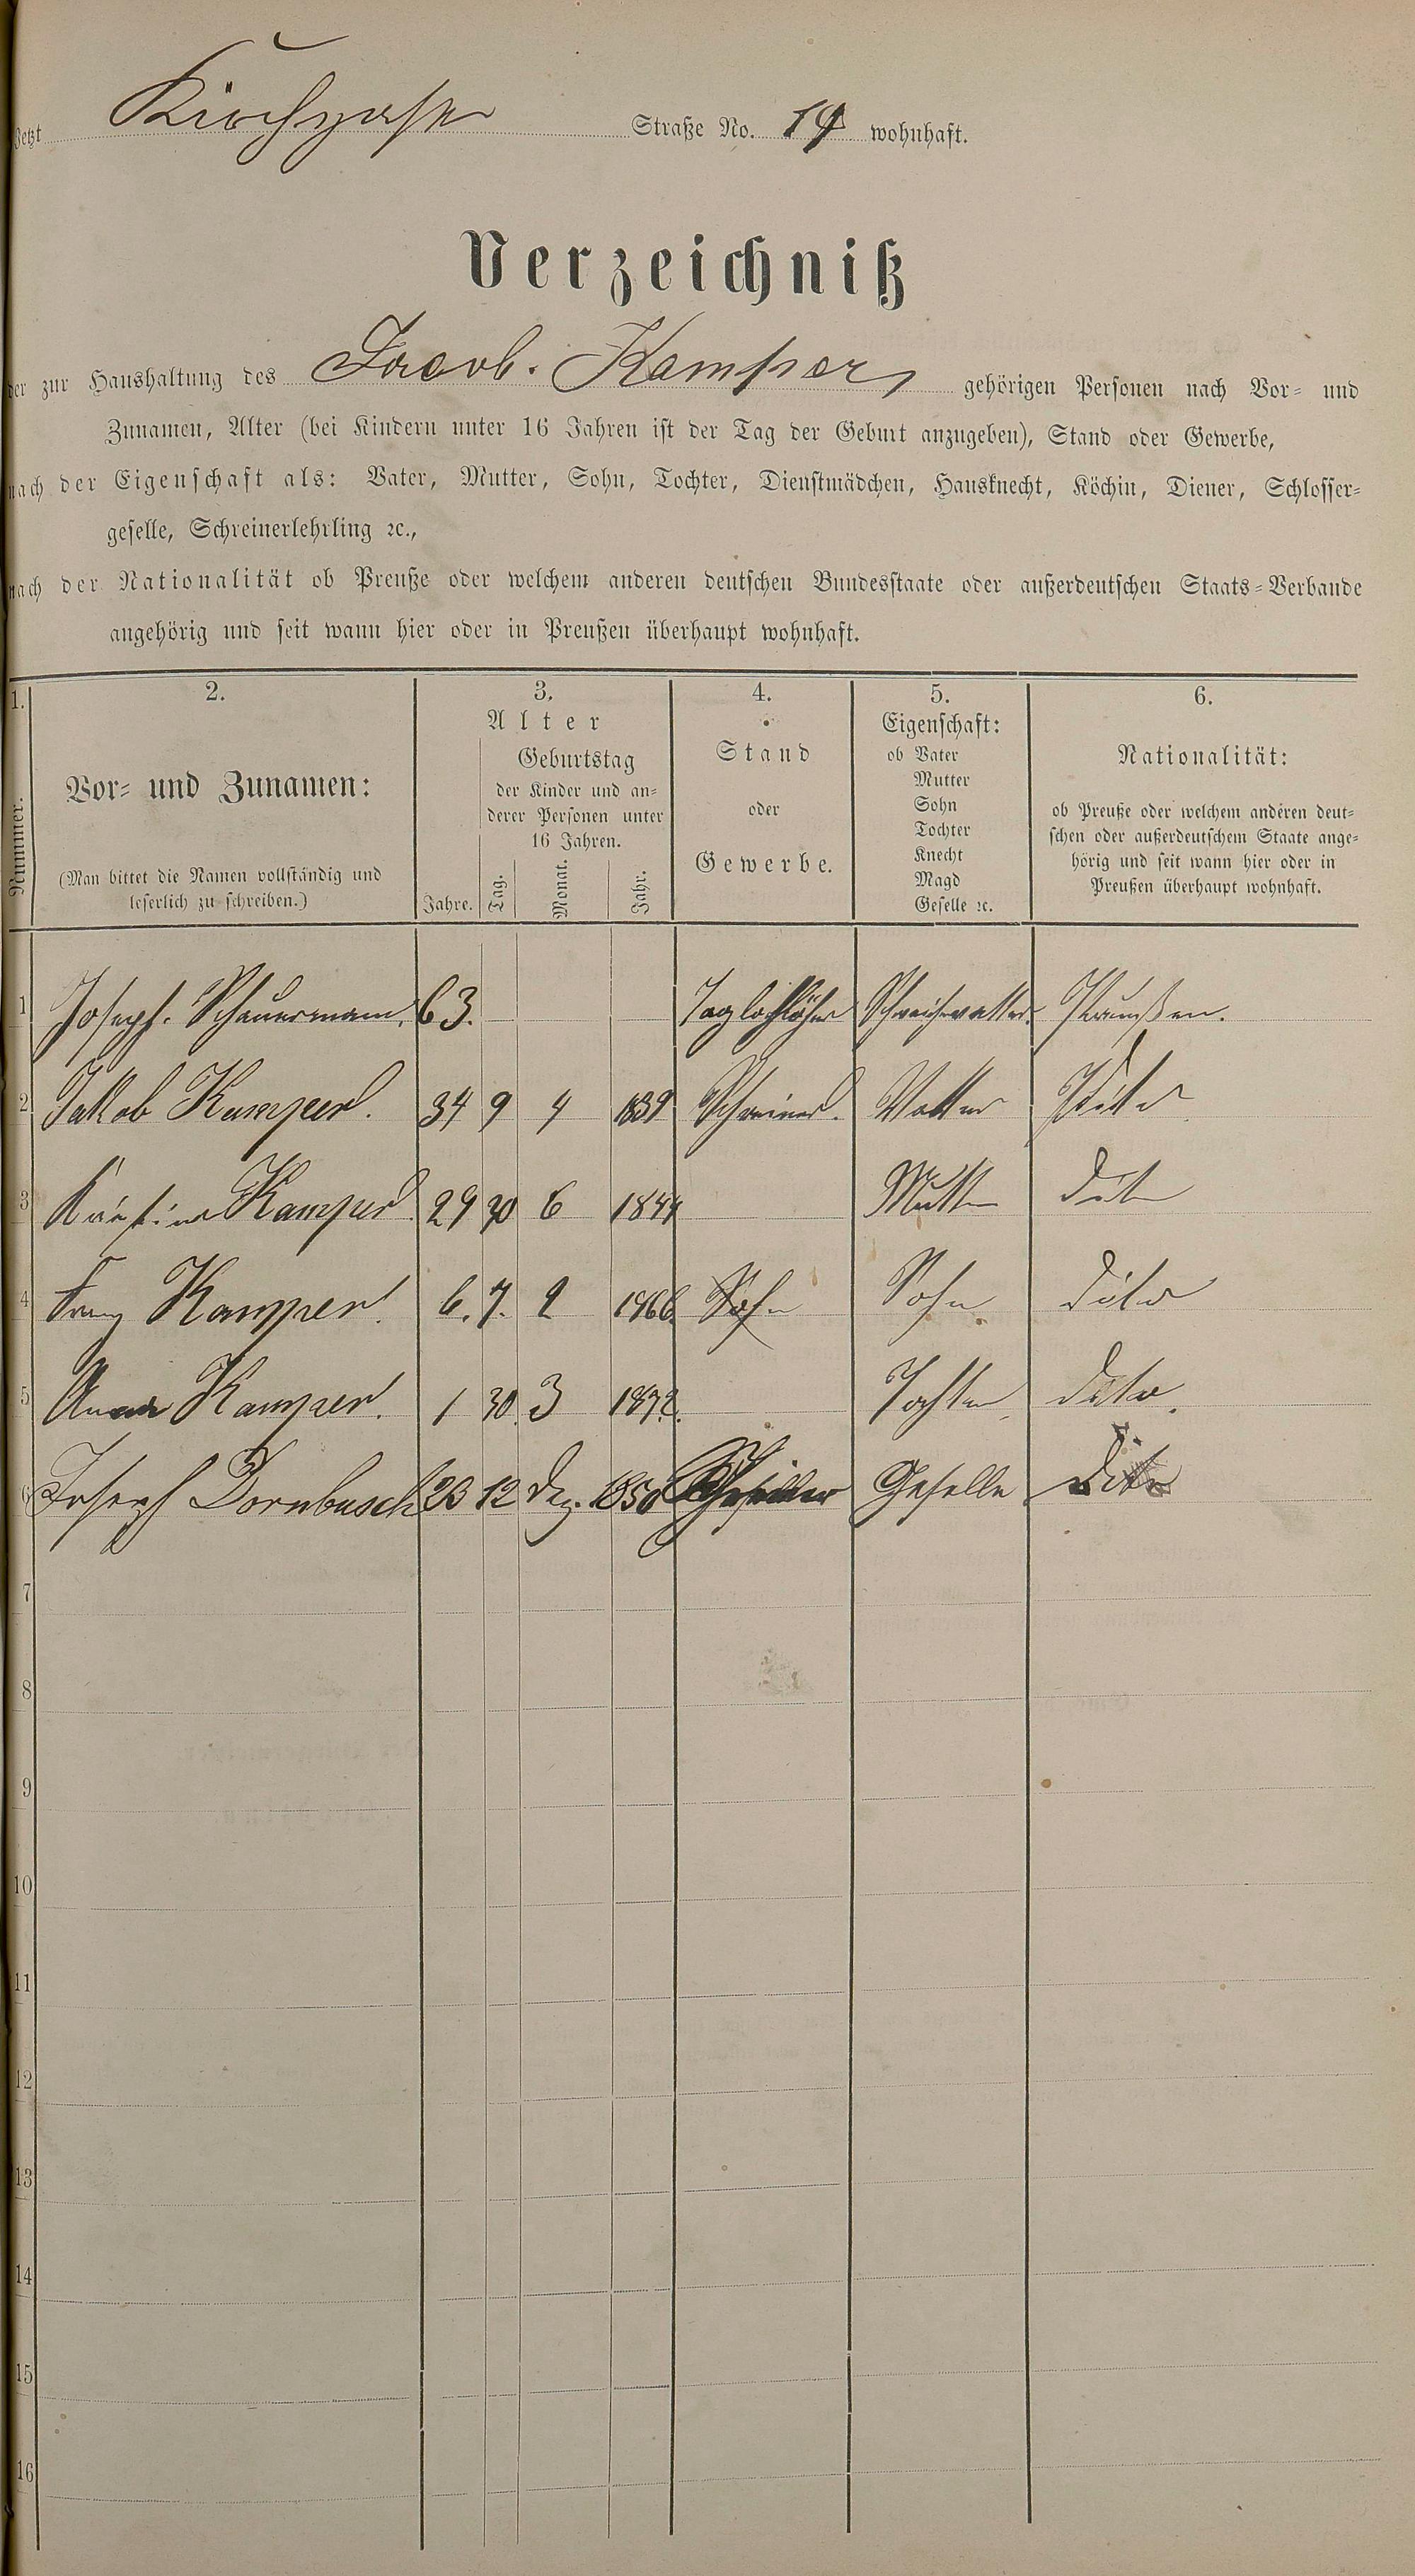 Jetzt Kirchgasse Straße No. 19 wohnhaft.
Verzeichniß
der zur Haushaltung des Jacob. Kamper, gehörigen Personen nach Vor- und
Zunamen, Alter (bei Kindern unter 16 Jahren ist der Tag der Geburt anzugeben), Stand oder Gewerbe,
nach der Eigenschaft als: Vater, Mutter, Sohn, Tochter, Dienstmädchen, Hausknecht, Köchin, Diener, Schlosser-
geselle, Schreinerlehrling ꝛc.,
nach der Nationalität ob Preuße oder welchem anderen deutschen Bundesstaate oder außerdeutschen Staats-Verbande
angehörig und seit wann hier oder in Preußen überhaupt wohnhaft.
1.
Nummer.
2.
Vor- und Zunamen:
(Man bittet die Namen vollständig und
leserlich zu schreiben.)
3.
Alter
Geburtstag
der Kinder und an-
derer Personen unter
16 Jahren.
Jahre. Tag. Monat. Jahr.
4.
Stand
oder
Gewerbe.
5.
Eigenschaft:
ob Vater
Mutter
Sohn
Tochter
Knecht
Magd
Geselle ꝛc.
6.
Nationalität:
ob Preuße oder welchem anderen deut-
schen oder außerdeutschem Staate ange-
hörig und seit wann hier oder in
Preußen überhaupt wohnhaft.
1 Joseph. Scheuermann. 63. Preußen.
2 Jakob Kamper. 34 9 4 1839 Schreiner. Vatter Dito
3 Kamper 29 30 6 1844 Mutter Dito
4 Franz Kamper. 6. 7. 9 1866 Sohn Sohn Dito
5 Anna Kamper. 1 30 3 1872. Tochter Dito.
6 Joseph Dornbusch 23 12 Dez. 1850 Geselle Dito
7
8
9
10
11
12
13
14
15
16